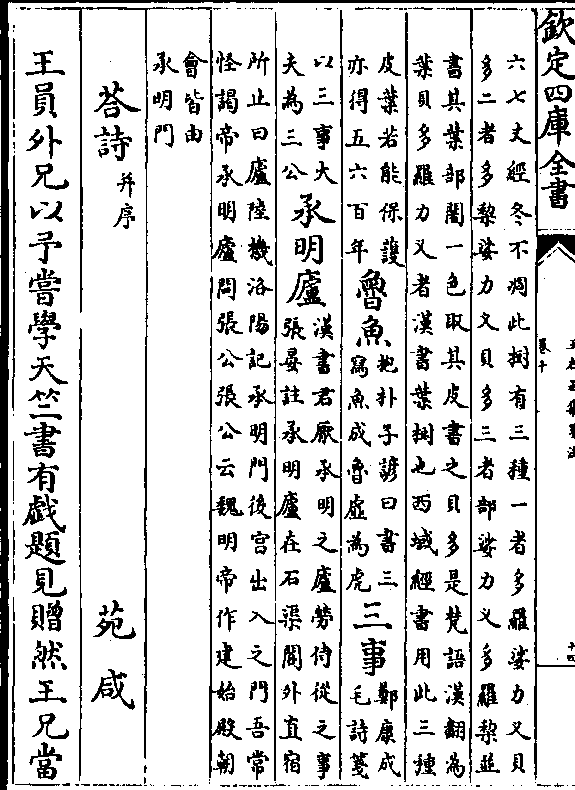 欽定四庫全書
卷十
六七丈經冬不凋此樹有三種一者多羅娑力叉貝
多二者多梨娑力叉貝多三者部娑力叉多羅梨並
書其葉部闍一色取其皮書之貝多是梵語漢翻為
葉貝多羅力叉者漢書葉樹也西域經書用此三種
皮葉若能保護
亦得五六百年
魯魚
抱朴子諺曰書三
寫魚成魯虛為虎
三事
鄭康成
毛詩箋
以三事大
夫為三公
承明廬
漢書君厭承明之廬勞侍從之事
張晏註承明廬在石渠閣外直宿
所止曰廬陸機洛陽記承明門後宮出入之門吾常
怪謁帝承明廬問張公張公云魏明帝作建始殿朝
會皆由
承明門
荅詩并序 苑咸
王員外兄以予嘗學天竺書有戲題見贈然王兄當